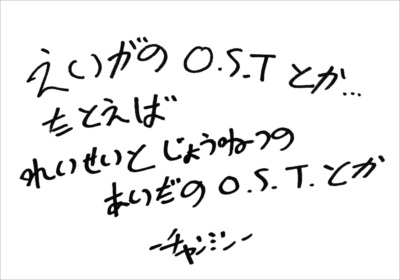 えいがの O.S.T とか...
たとえば
れいせいと じょうねつの
あいだの O.S.T. とか
-チャンミン-